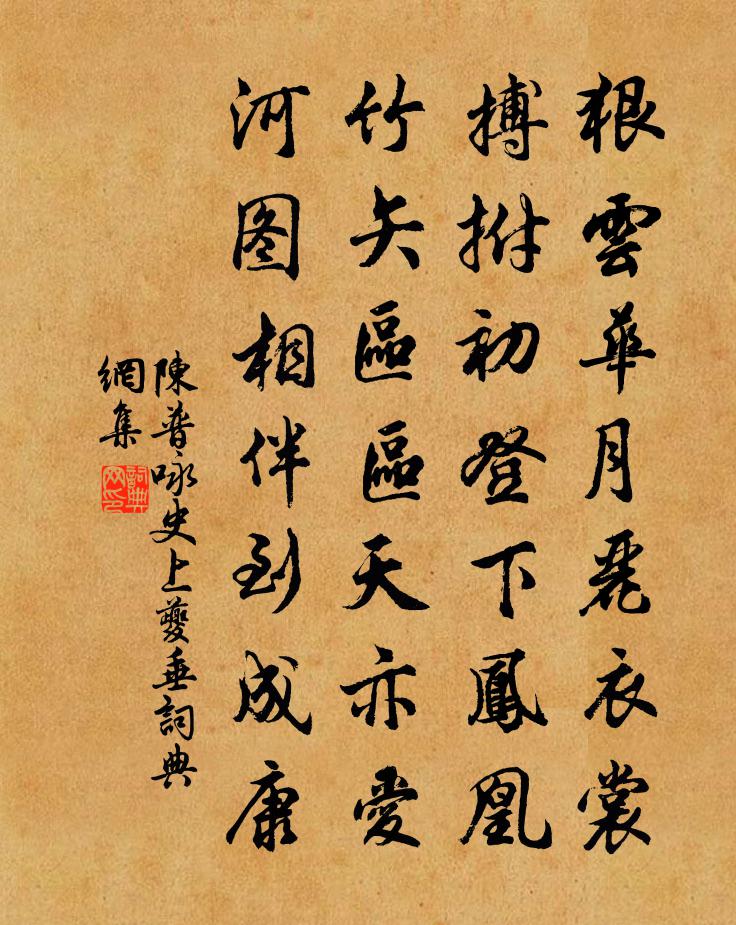 狠雲華月麗衣裳
搏拊初登下鳳凰
竹矢區區天亦愛
河图相伴到成康
陳普咏史上夔垂詞典
網集
詞典
网印